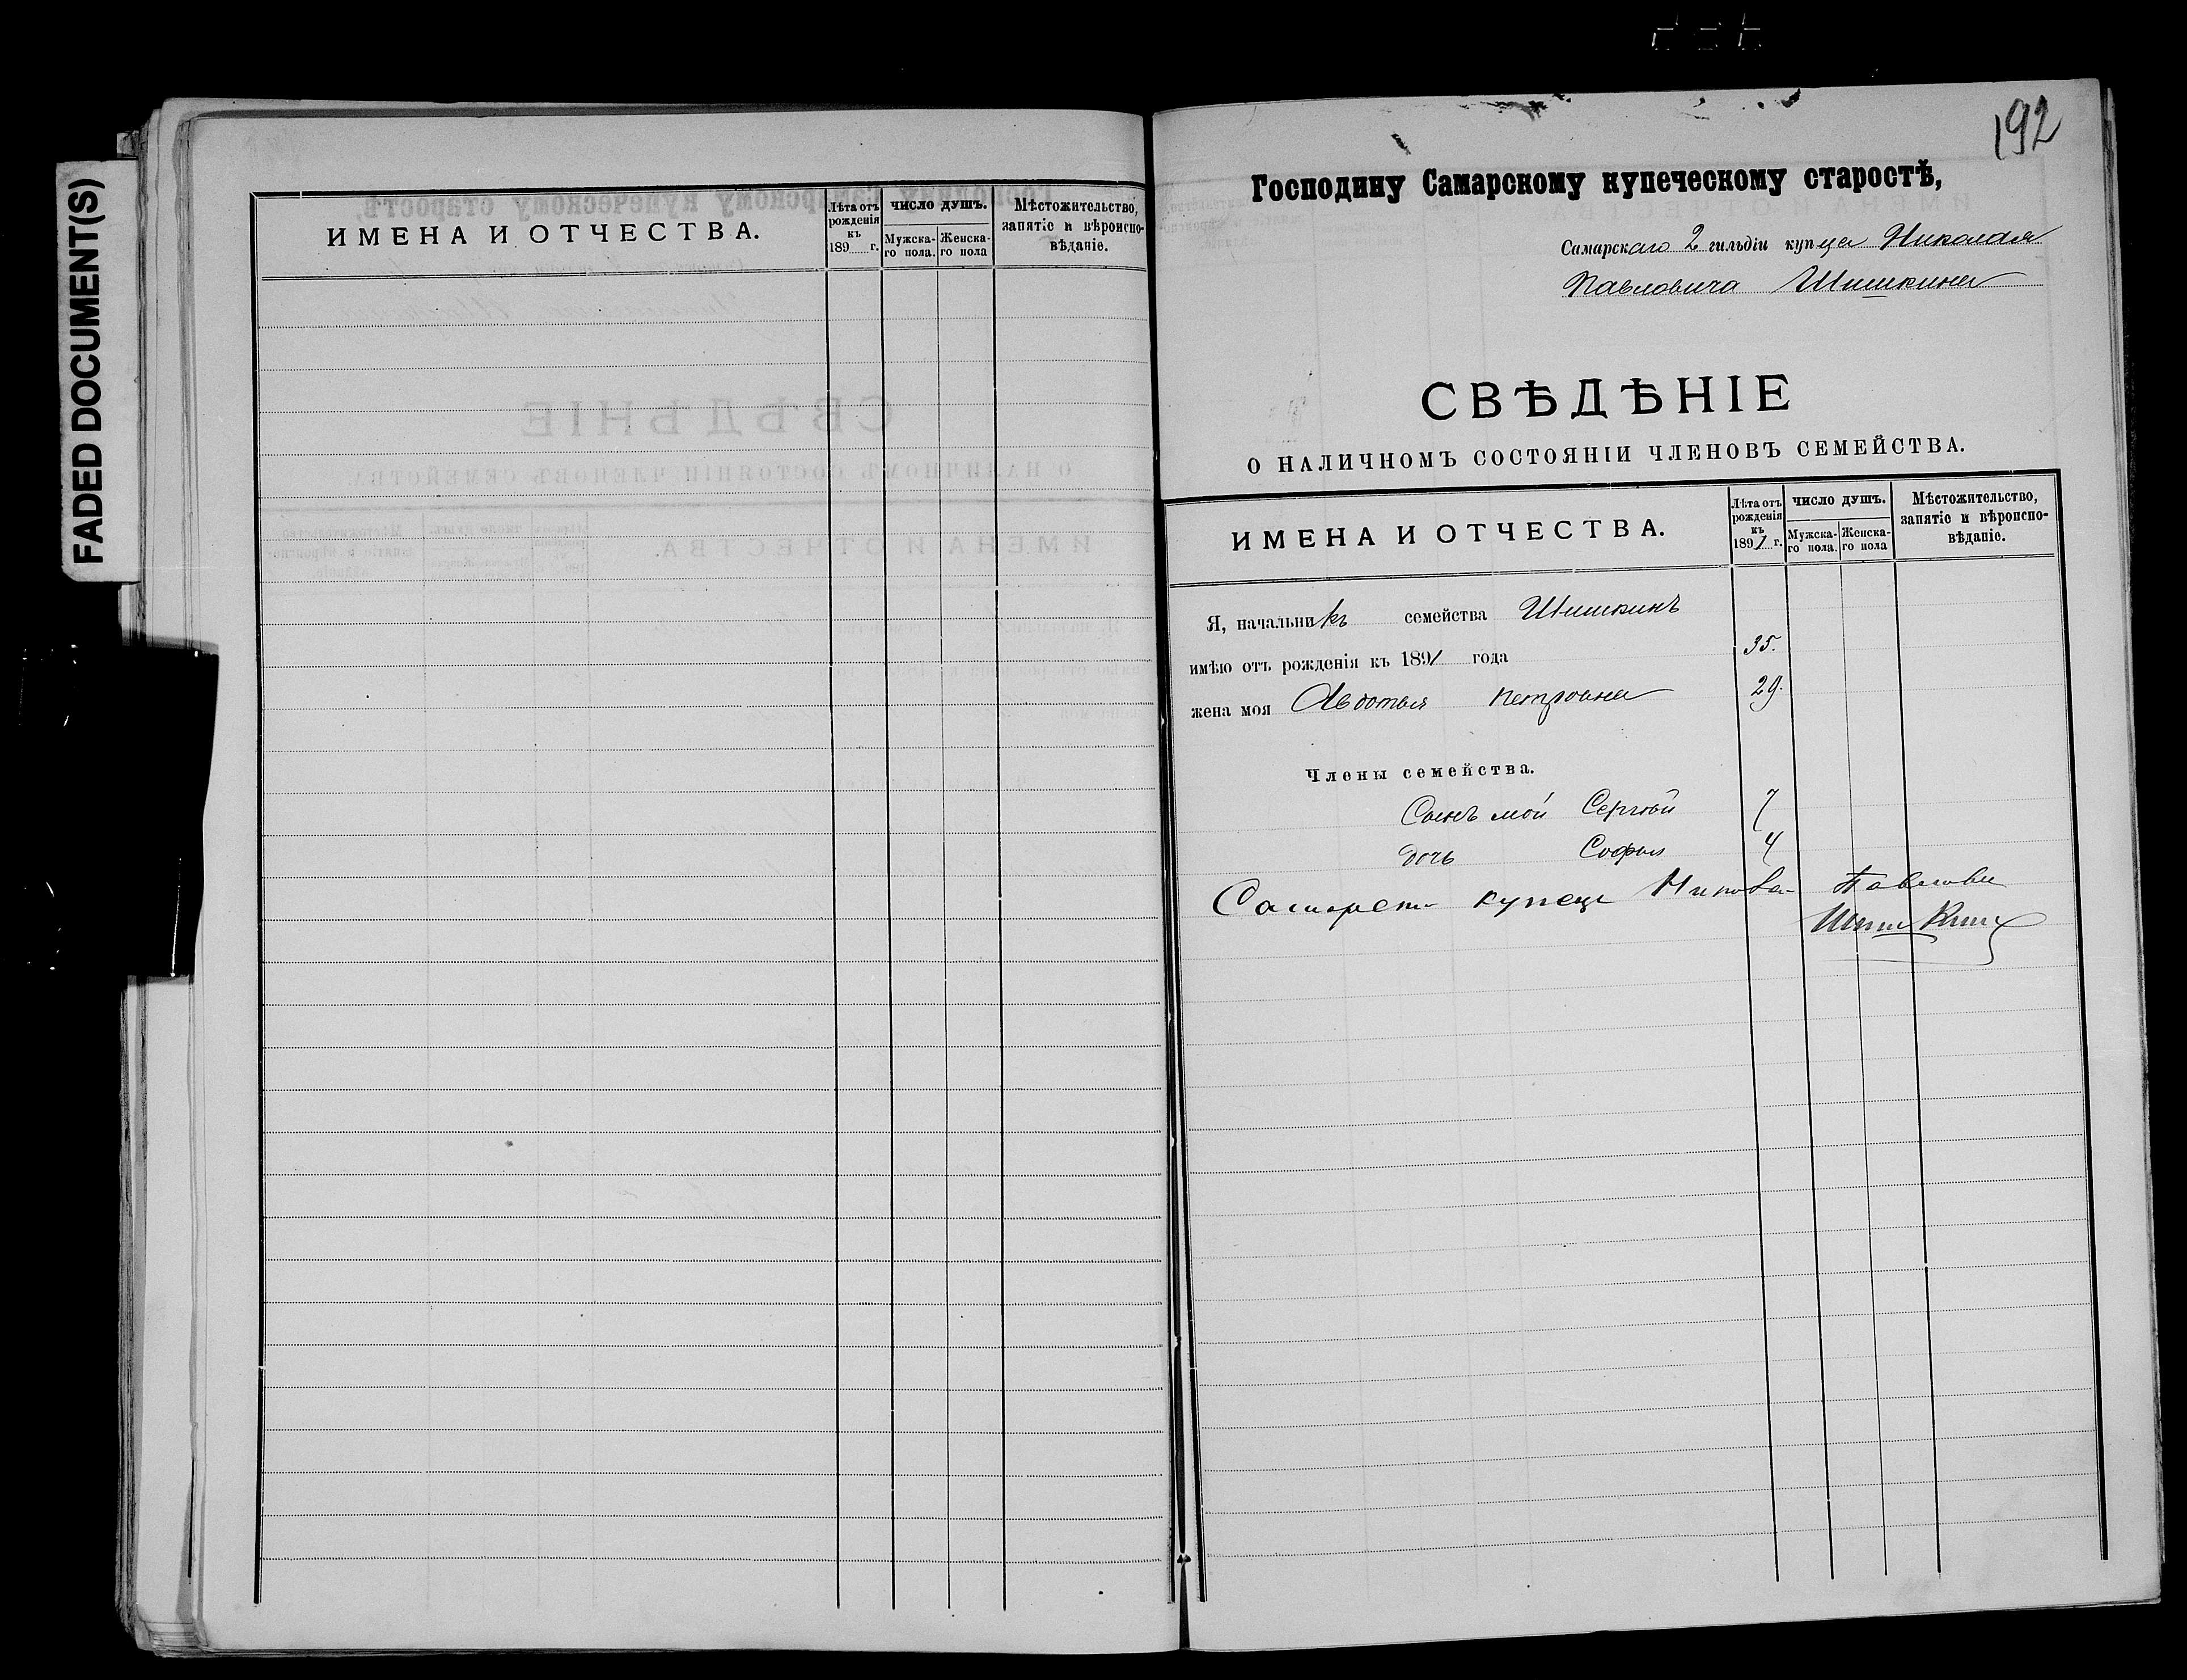 FADED DOCUMENT(S)
ИМЕНА И ОТЧЕСТВА.
Лѣта отъ рожденія къ 189 г.
ЧИСЛО ДУШЪ.
Мужска-го пола.
Женска-го пола
Мѣстожительство, занятіе и вѣроиспо-вѣданіе.
192
Господину Самарскому купеческому старостѣ,
Самарскаго 2 гильдіи купца Николая
Павловича Шишкина
СВѢДѢНІЕ
О НАЛИЧНОМЪ СОСТОЯНІИ ЧЛЕНОВЪ СЕМЕЙСТВА.
ИМЕНА И ОТЧЕСТВА.
Лѣта отъ рожденія къ 1891 г.
ЧИСЛО ДУШЪ.
Мужска-го пола.
Женска-го пола
Мѣстожительство, занятіе и вѣроиспо-вѣданіе.
Я, начальникъ семейства Шишкинъ
имѣю отъ рожденія къ 1891 года 35.
жена моя Авдотья Петровна 29.
Члены семейства.
Сынъ мой Сергѣй 7
дочь Софья 4
купецъ
Шишкинъ